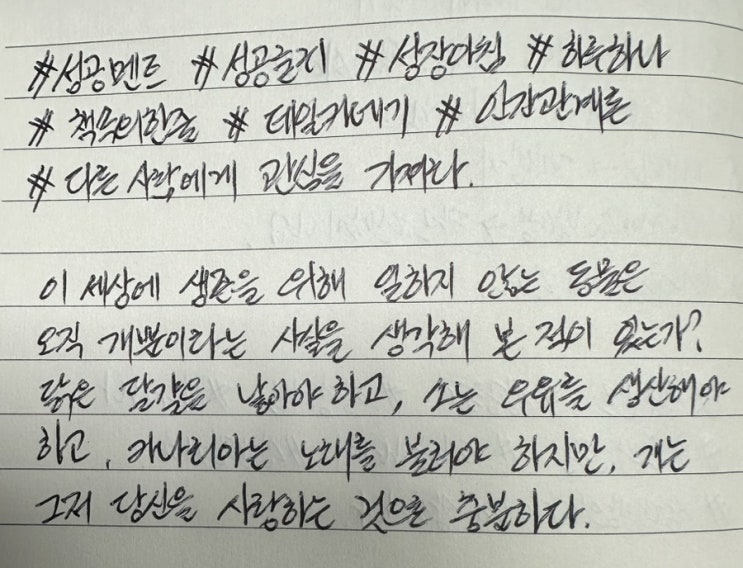 #성공멘트 #성공늘리 #성장아침 #하루하나
#책속의한줄 #데일카네기 #인간관계론
#다른 사람에게 관심을 가져라.
이 세상에 생존을 위해 일하지 않는 동물은
오직 개뿐이라는 사실을 생각해 본 적이 있는가?
닭은 달걀을 낳아야 하고, 소는 우유를 생산해야
하고, 카나리아는 노래를 불러야 하지만, 개는
그저 당신을 사랑하는 것으로 충분하다.